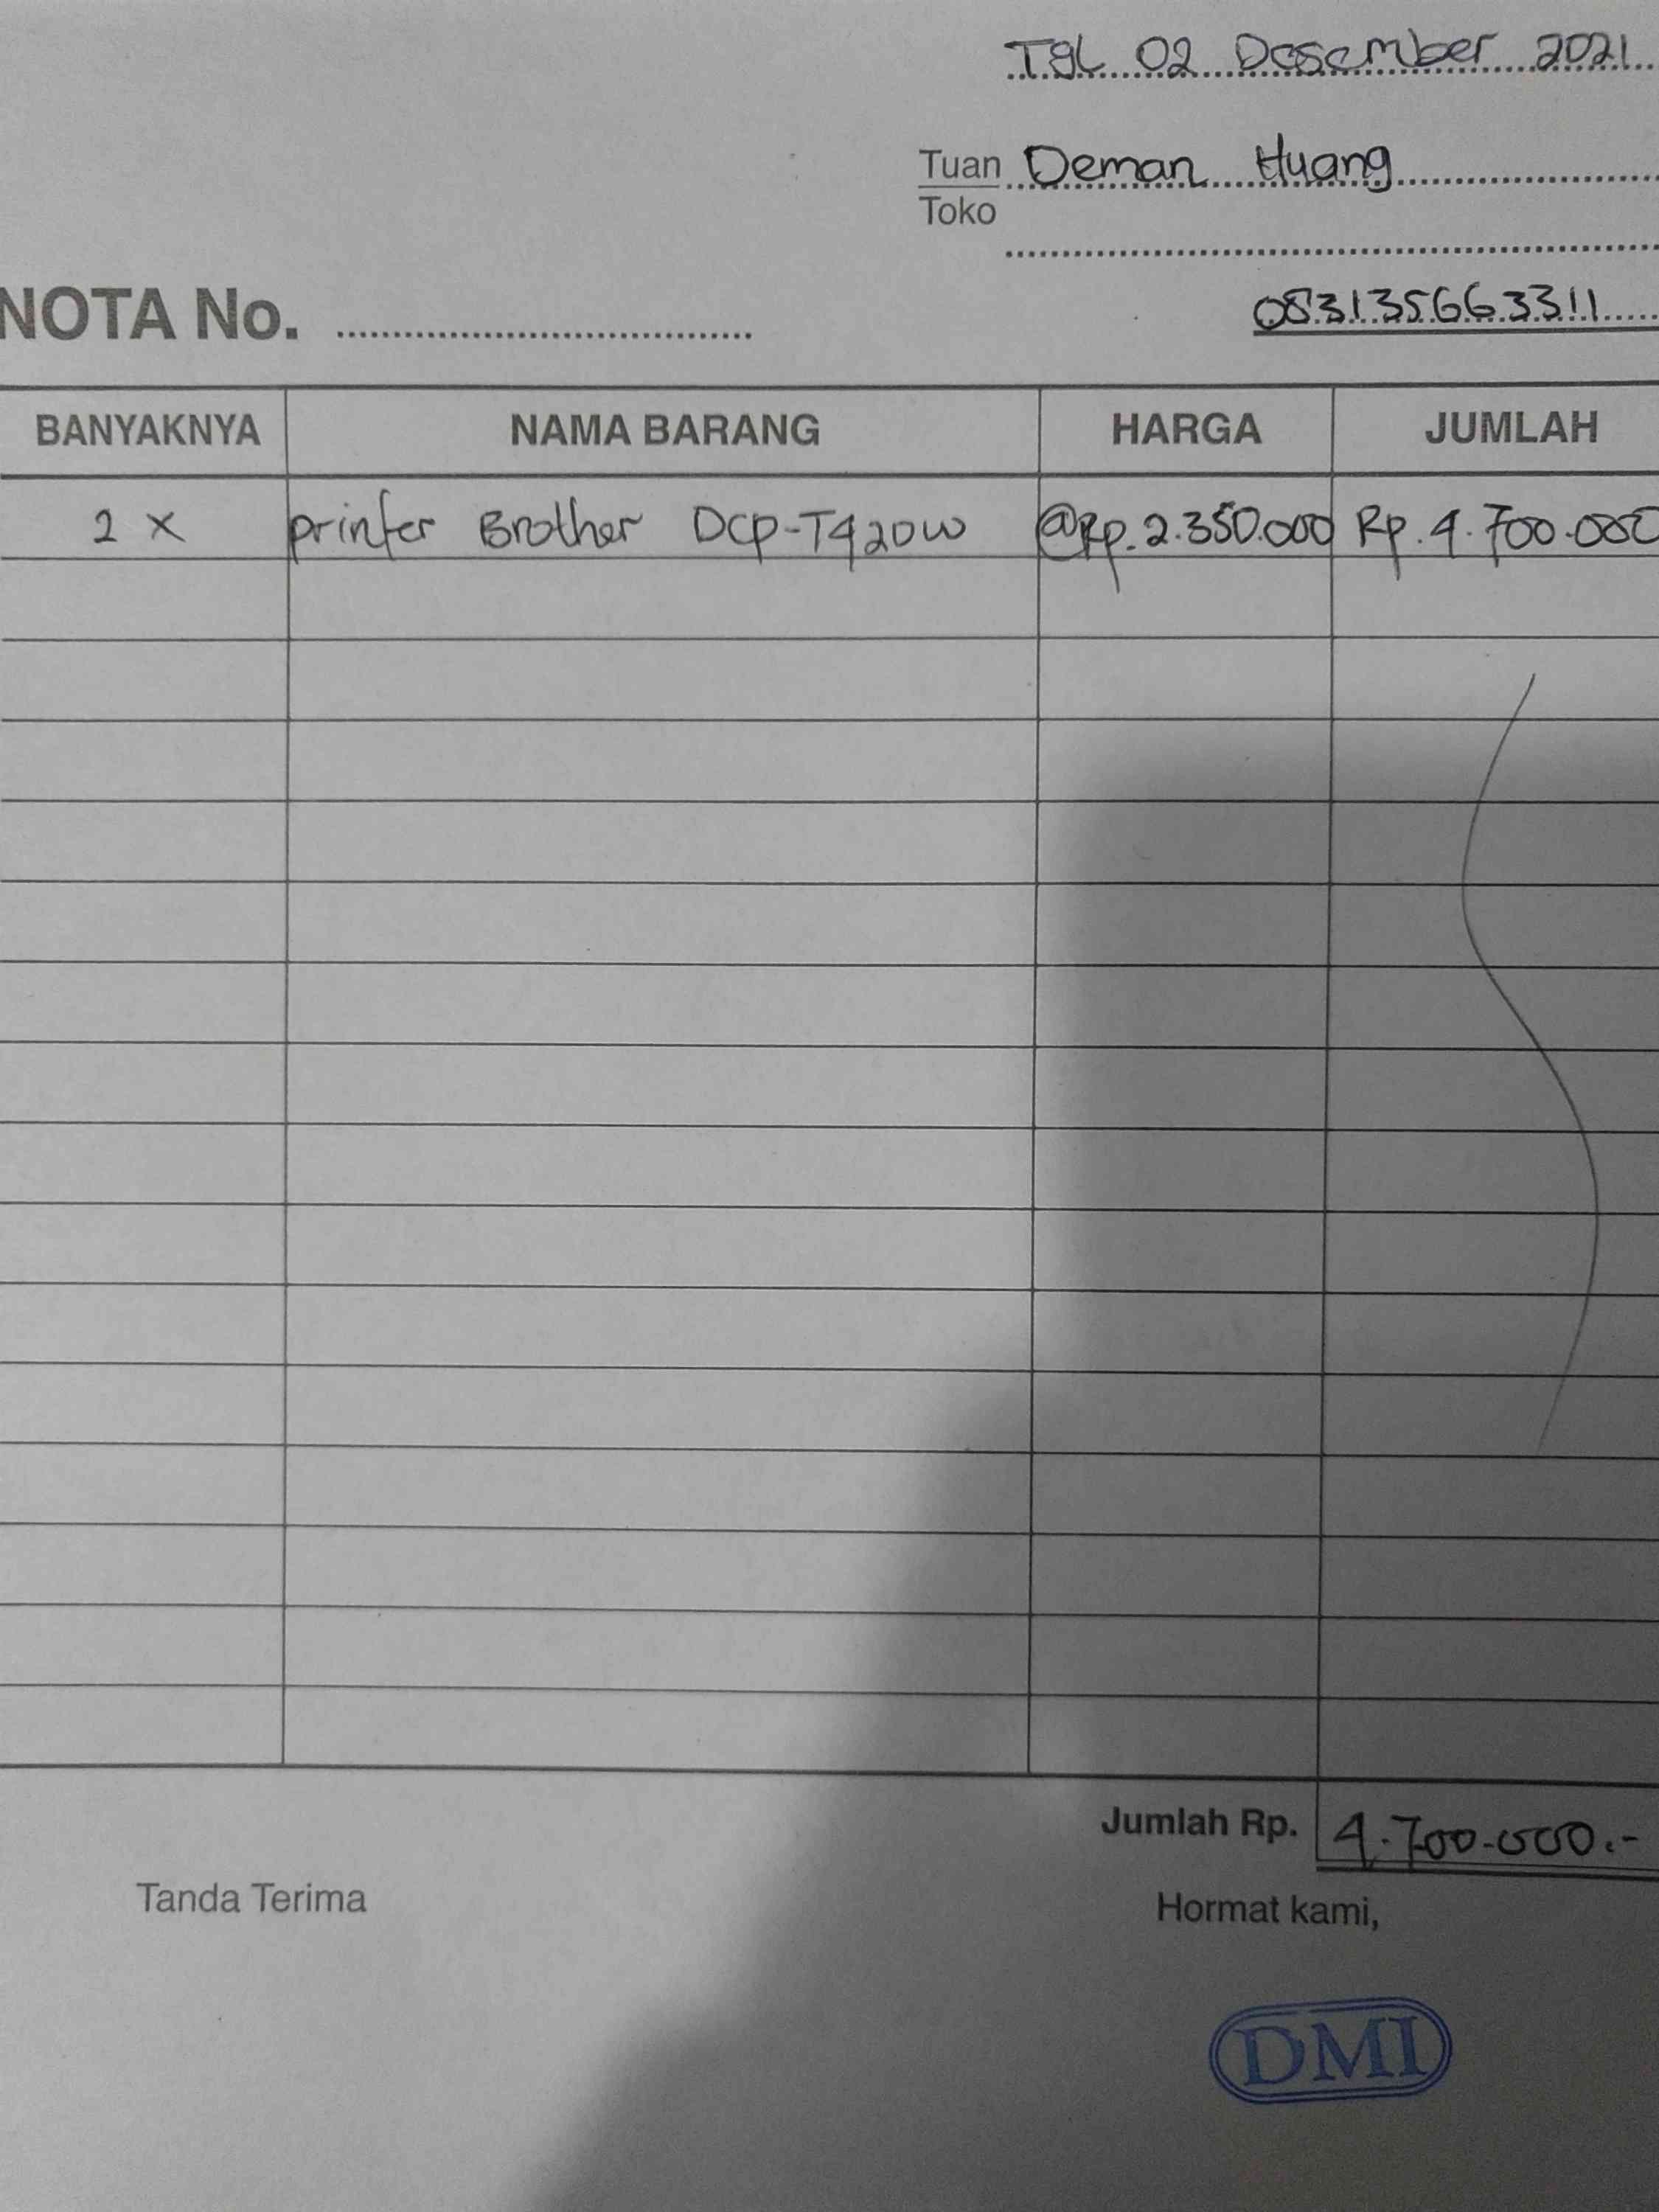 Tgl 02 Desember 2021
Tuan Deman Huang
Toko
NOTA No. 083135663311
BANYAKNYA NAMA BARANG HARGA JUMLAH
2 x printer Brother DCP-T420W @Rp. 2.350.000 Rp. 4.700.000
Jumlah Rp. 4.700.000.-
Tanda Terima Hormat kami,
DMI